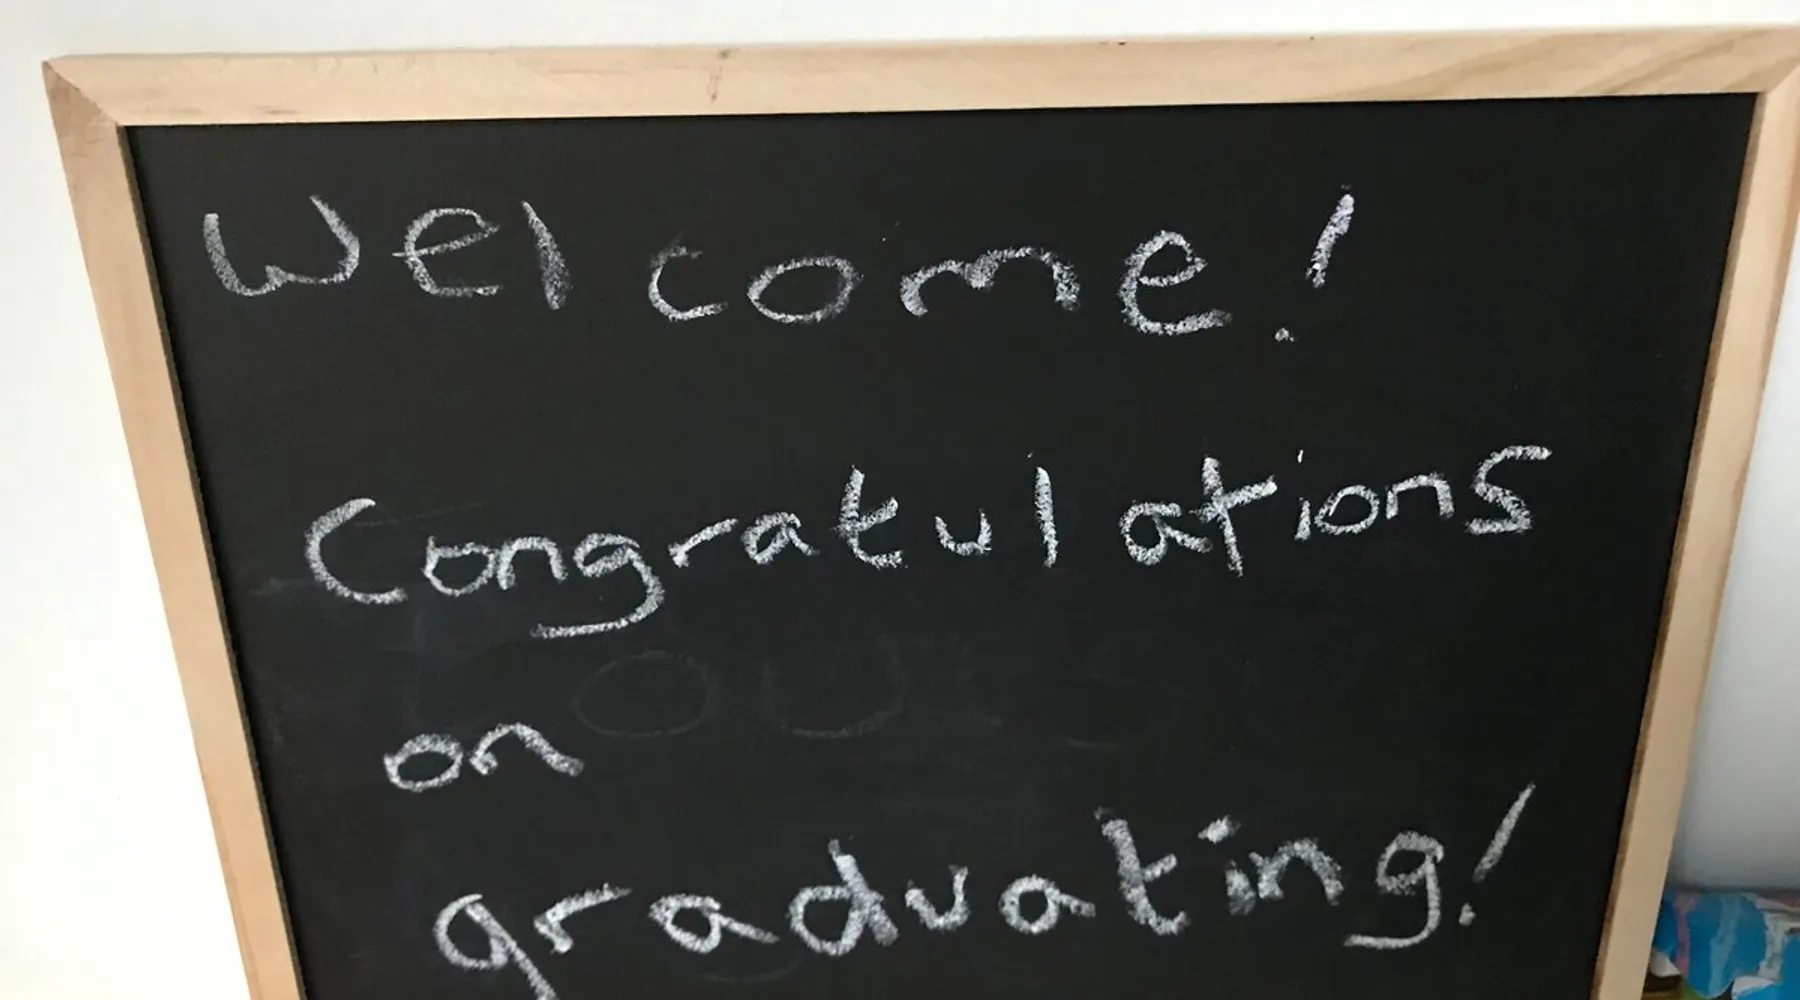 Welcome!
Congratulations
on
graduating!